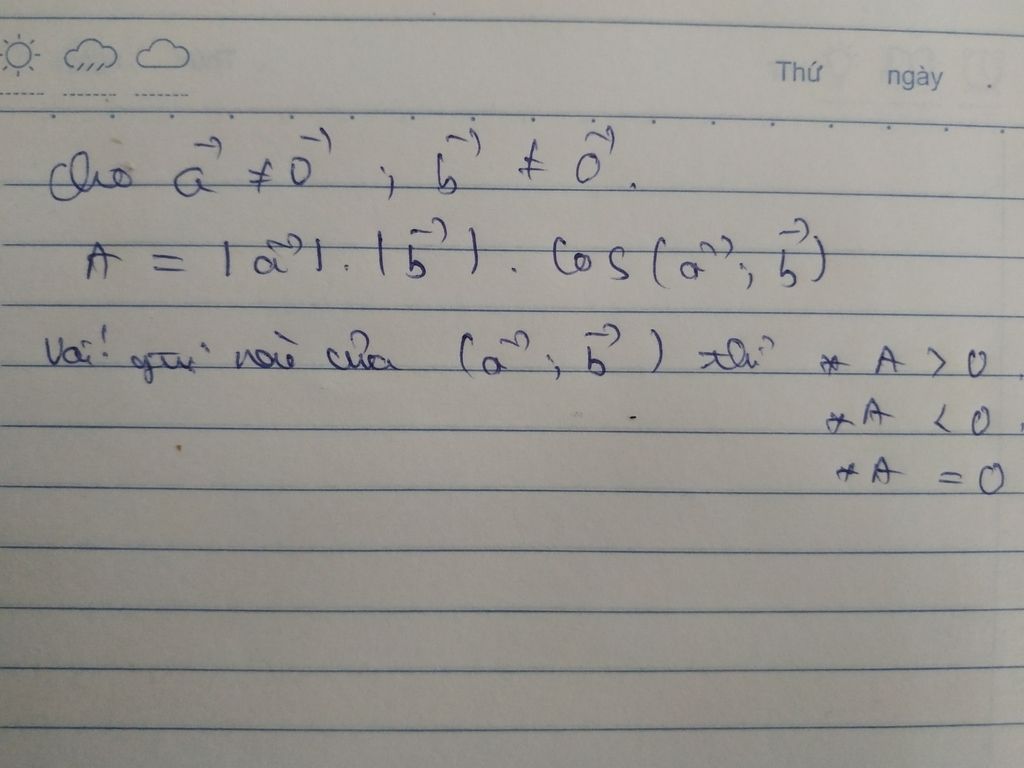 Thứ ngày .
Cho a→ ≠ 0→ ; b→ ≠ 0→.
A = |a→| . |b→| . Cos (a→ ; b→)
Với gtrị nào của (a→ ; b→) thì * A > 0.
* A < 0.
* A = 0